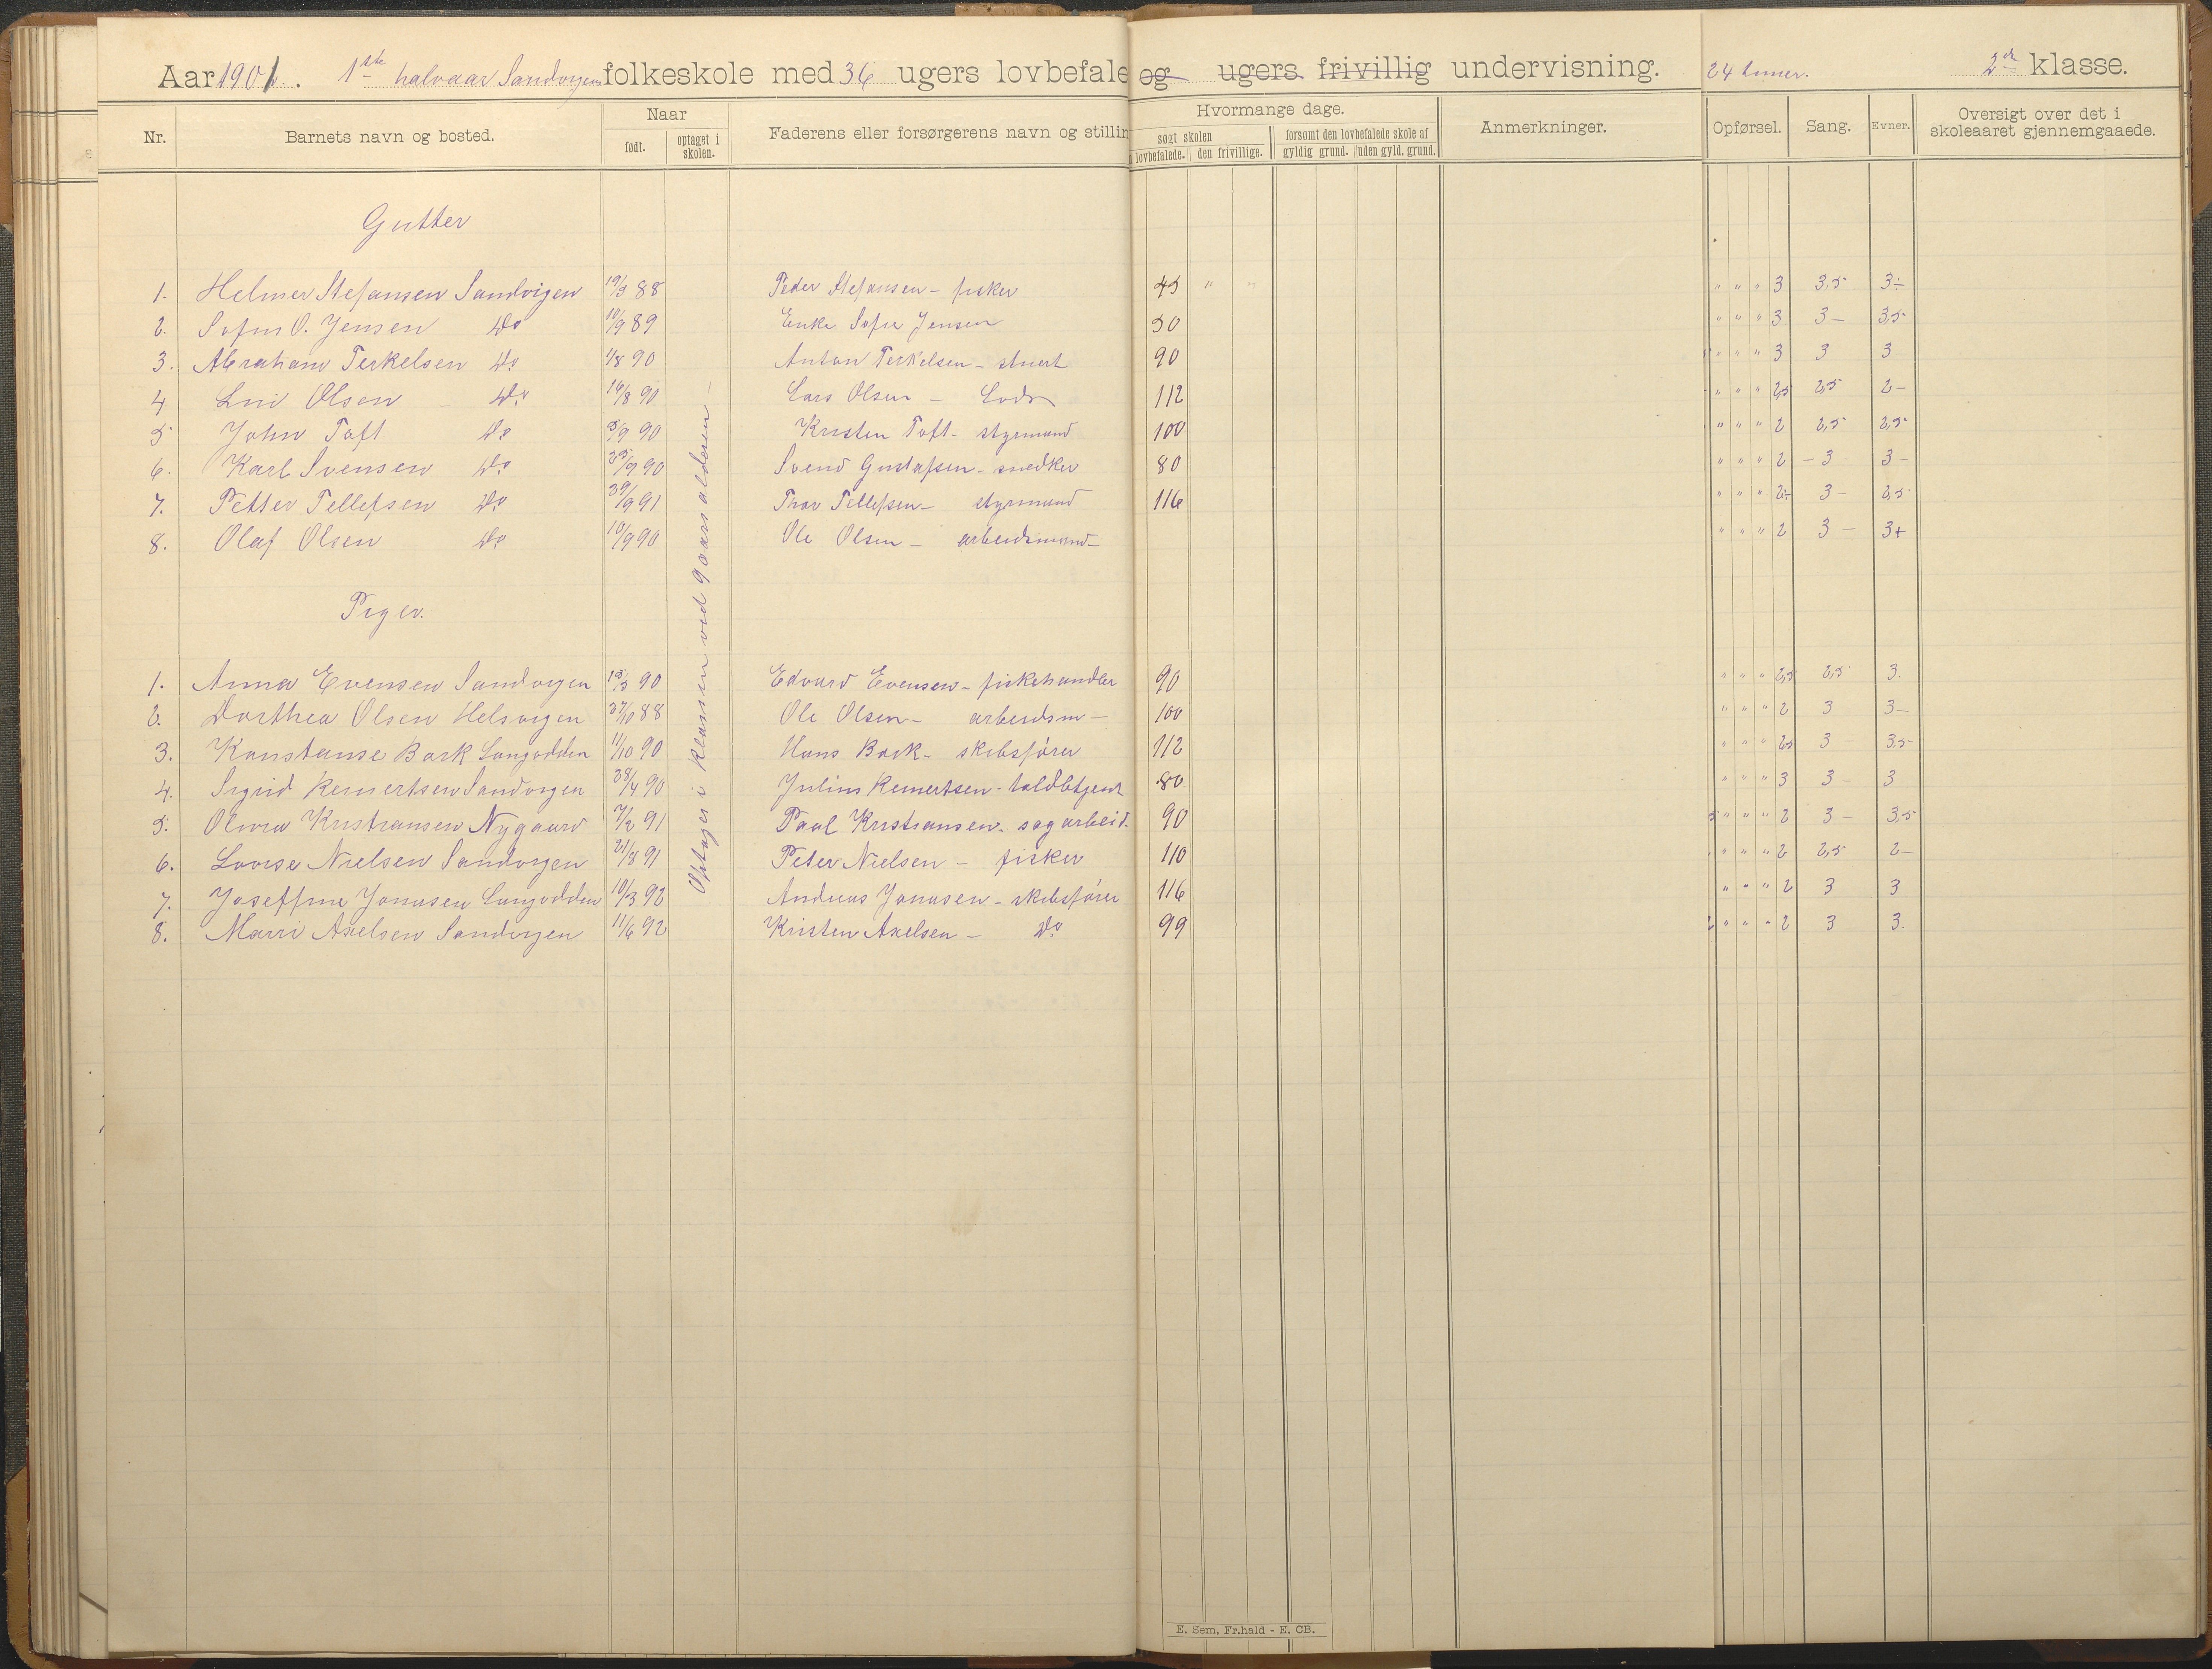 Aar 1901. 1ste halvaar Sandvigens folkeskole med 36 ugers lovbefale og ugers frivillig undervisning. 24 timer. 2den klasse.
Nr. Barnets navn og bosted. Naar født. optaget i skolen. Faderens eller forsørgerens navn og stillin Hvormange dage. søgt skolen lovbefalede. den frivillige. forsømt den lovbefalede skole af gyldig grund. uden gyld. grund. Anmerkninger. Opførsel. Sang. Evner. Oversigt over det i skoleaaret gjennemgaaede.
Gutter
1. Helmer Stefansen Sandvigen 19/3 88 Peder Stefansen - fisker 45 " " " " " 3 3,5 3-
2. Sofus O. Jensen Do 10/9 89 Enke Sofie Jensen 50 " " " 3 3- 3,5
3. Abraham Terkelsen Do 1/8 90 Anton Terkelsen - stuert 90 " " " 3 3 3
4 Olsen Do 16/8 90 Lars Olsen - Lods 112 " " " 2,5 2,5 2-
5 John Toft Do 5/9 90 Kristen Toft - styrmand 100 " " " 2 2,5 2,5
6. Karl Svensen Do 25/9 90 Svend Gustafsen - snedker 80 " " " 2 - 3 3-
7. Petter Tellefsen Do 91 Thor Tellefsen - styrmand 116 " " " 2- 3- 2,5
8. Olaf Olsen Do 10/9 90 Ole Olsen - arbeidsmand - " " " 2 3- 3+
Optages i klassen ved 9 aars alderen -
Piger.
1. Anna Evensen Sandvigen 15/3 90 Edvard Evensen - fiskehandler 90 " " " 2,5 2,5 3.
2. Dorthea Olsen Helsvigen 88 Ole Olsen - arbeidsm - 100 " " " 2 3 3-
3. Konstanse Bork Langodden 11/10 90 Hans Bork - skibsfører 112 " " " 2,5 3- 3,5-
4. Sigrid Reinertsen Sandvigen 28/4 90 Julius Reinertsen - toldbtjent 80 " " " 3 3- 3
5. Olivia Kristiansen Nygaard 7/2 91 Paul Kristiansen - sagarbeid. 90 " " " 2 3- 3,5
6. Lovise Nielsen Sandvigen 21/8 91 Peter Nielsen - fisker 110 " " " 2 2,5 2-
7. Joseffine Jonasen Langodden 10/3 92 Andreas Jonasen - skibsfører 116 " " " 2 3 3
8. Marri Axelsen Sandvigen 11/6 92 Kristen Axelsen - Do 99 " " " 2 3 3.
E. Sem, Fr.hald - E. CB.